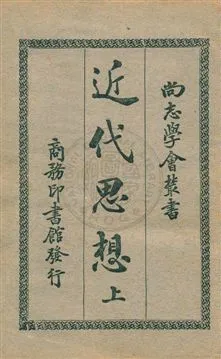 尚志學會叢書
近代思想上
商務印書館發行